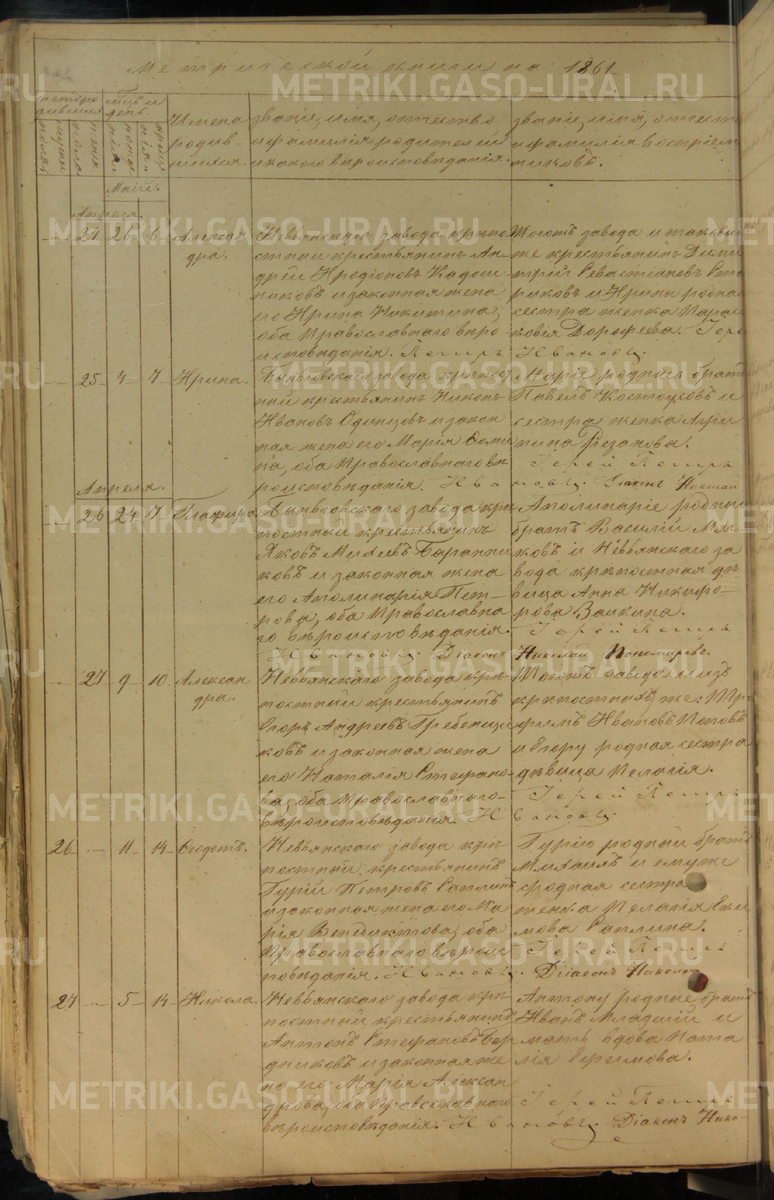 Метрической книги на 1861
METRIKI.GASO-URAL.RU
Имена родившихся.
Званіе, имя, отчество и фамилія родителей и какого вѣроисповѣданія.
Званіе, имя, отчество и фамилія воспріемниковъ.
Маія.
Апрѣля.
24 26 6 Александра.
Невьянскаго завода крѣпо
стный крестьянинъ Ан
дрей Иродіоновъ Кадош
никовъ и законная жена
его Ирина Никитина,
оба Православнаго вѣро
исповѣданія.
Тогожъ завода и таковый
же крестьянинъ Дими
трій Севастіановъ
и Ирины родная
сестра женка Парас
ковія Дорофеева. Іерей
Петръ Ивановъ.
25 4 7 Ирина.
Быньговскаго завода крѣпост
ный крестьянинъ Никонъ
Ивановъ Одинцовъ и закон
ная жена его Марія
оба Православнаго вѣ
роисповѣданія.
Маріи родный братъ
Павелъ и
сестра женка
Іерей Петръ
Ивановъ. Діаконъ Николай
Апрѣля.
26 24 17 Глафира
Быньговскаго завода крѣ
постный крестьянинъ
Яковъ Михеевъ Баранни
ковъ и законная жена
его Аполинарія Пет
рова, оба Православна
го вѣроисповѣданія.
Аполинаріи родный
братъ Василій
и Невьянскаго за
вода крѣпостная дѣ
вица Анна Никифо
рова Заикина.
Іерей Петръ
Ивановъ. Діаконъ Николай Пономаревъ.
27 9 10 Александра.
Невьянскаго завода крѣ
постный крестьянинъ
Егоръ Андреевъ Гребенщи
ковъ и законная жена
его Наталія Стефано
ва, оба Православнаго
вѣроисповѣданія.
Тогожъ завода изъ
крѣпостныхъ же Тро
фимъ Ивановъ Поповъ
и Егору родная сестра
дѣвица Пелагія.
Іерей Петръ
Ивановъ.
26 11 14 Ѳеодотъ.
Невьянскаго завода крѣ
постный крестьянинъ
Гурій Петровъ Саплинъ
и законная жена его Ма
рія Венедиктова, оба
Православнаго вѣроис
повѣданія.
Гурію родный братъ
Михаилъ и ему же
сродная сестра
женка Пелагія Еки
мова Саплина.
Іерей Петръ
Ивановъ. Діаконъ Николай
27 5 14 Никола.
Невьянскаго завода крѣ
постный крестьянинъ
Антонъ Стефановъ Бер
дниковъ и законная же
на его Марія Алексан
дрова, оба Православнаго
вѣроисповѣданія.
Антону родные братъ
Иванъ Младшій и
мать вдова Ната
лія Ефимова.
Іерей Петръ
Ивановъ. Діаконъ Нико